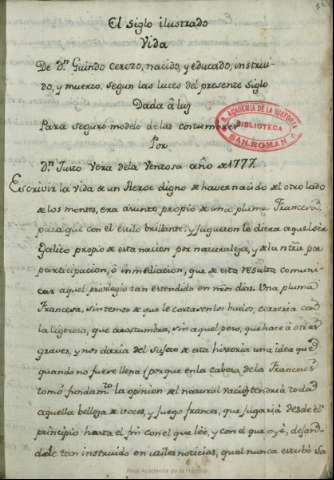 El siglo ilustrado
Vida
De Dn. Guindo Cerezo, nacido, y educado, instrui-
do, y muerto, segun las luces del presente siglo
Dada à luz
Para seguro modelo de las costumbres
Por
Dn. Justo Vera de la Ventosa año de 1777.
ACADEMIA DE LA HISTORIA
BIBLIOTECA
SAN ROMAN
Escrivir la vida de un Heroe digno de haver nacido del otro lado
de los montes, era asunto propio de una pluma Francesa
para que con el estilo brillante, y jugueton le diera aquel ayre
Galico propio de esta nacion por naturaleza, y de la
participacion, ò inmediacion, que de esta resulta comuni-
car aquel privilegio tan estendido en nros dias. Una pluma
Francesa, sin temor de que le cortasen los huelos, correria con
la ligereza, que acostumbra, sin aquel pero, que hace à otras
graves, y nos daria del sugeto de esta historia una idea que
quando no fuere llena (porque en la cabeza de la Francesa
tomò fundamto. la opinion del natural vacio) tendria toda
aquella belleza de voces, y fuego frances, que jugaria desde el
principio hasta el fin con el que lèe, y con el que oyè, dejando-
dole tan instruido en utiles noticias, qual nunca
Real Academia de la Historia